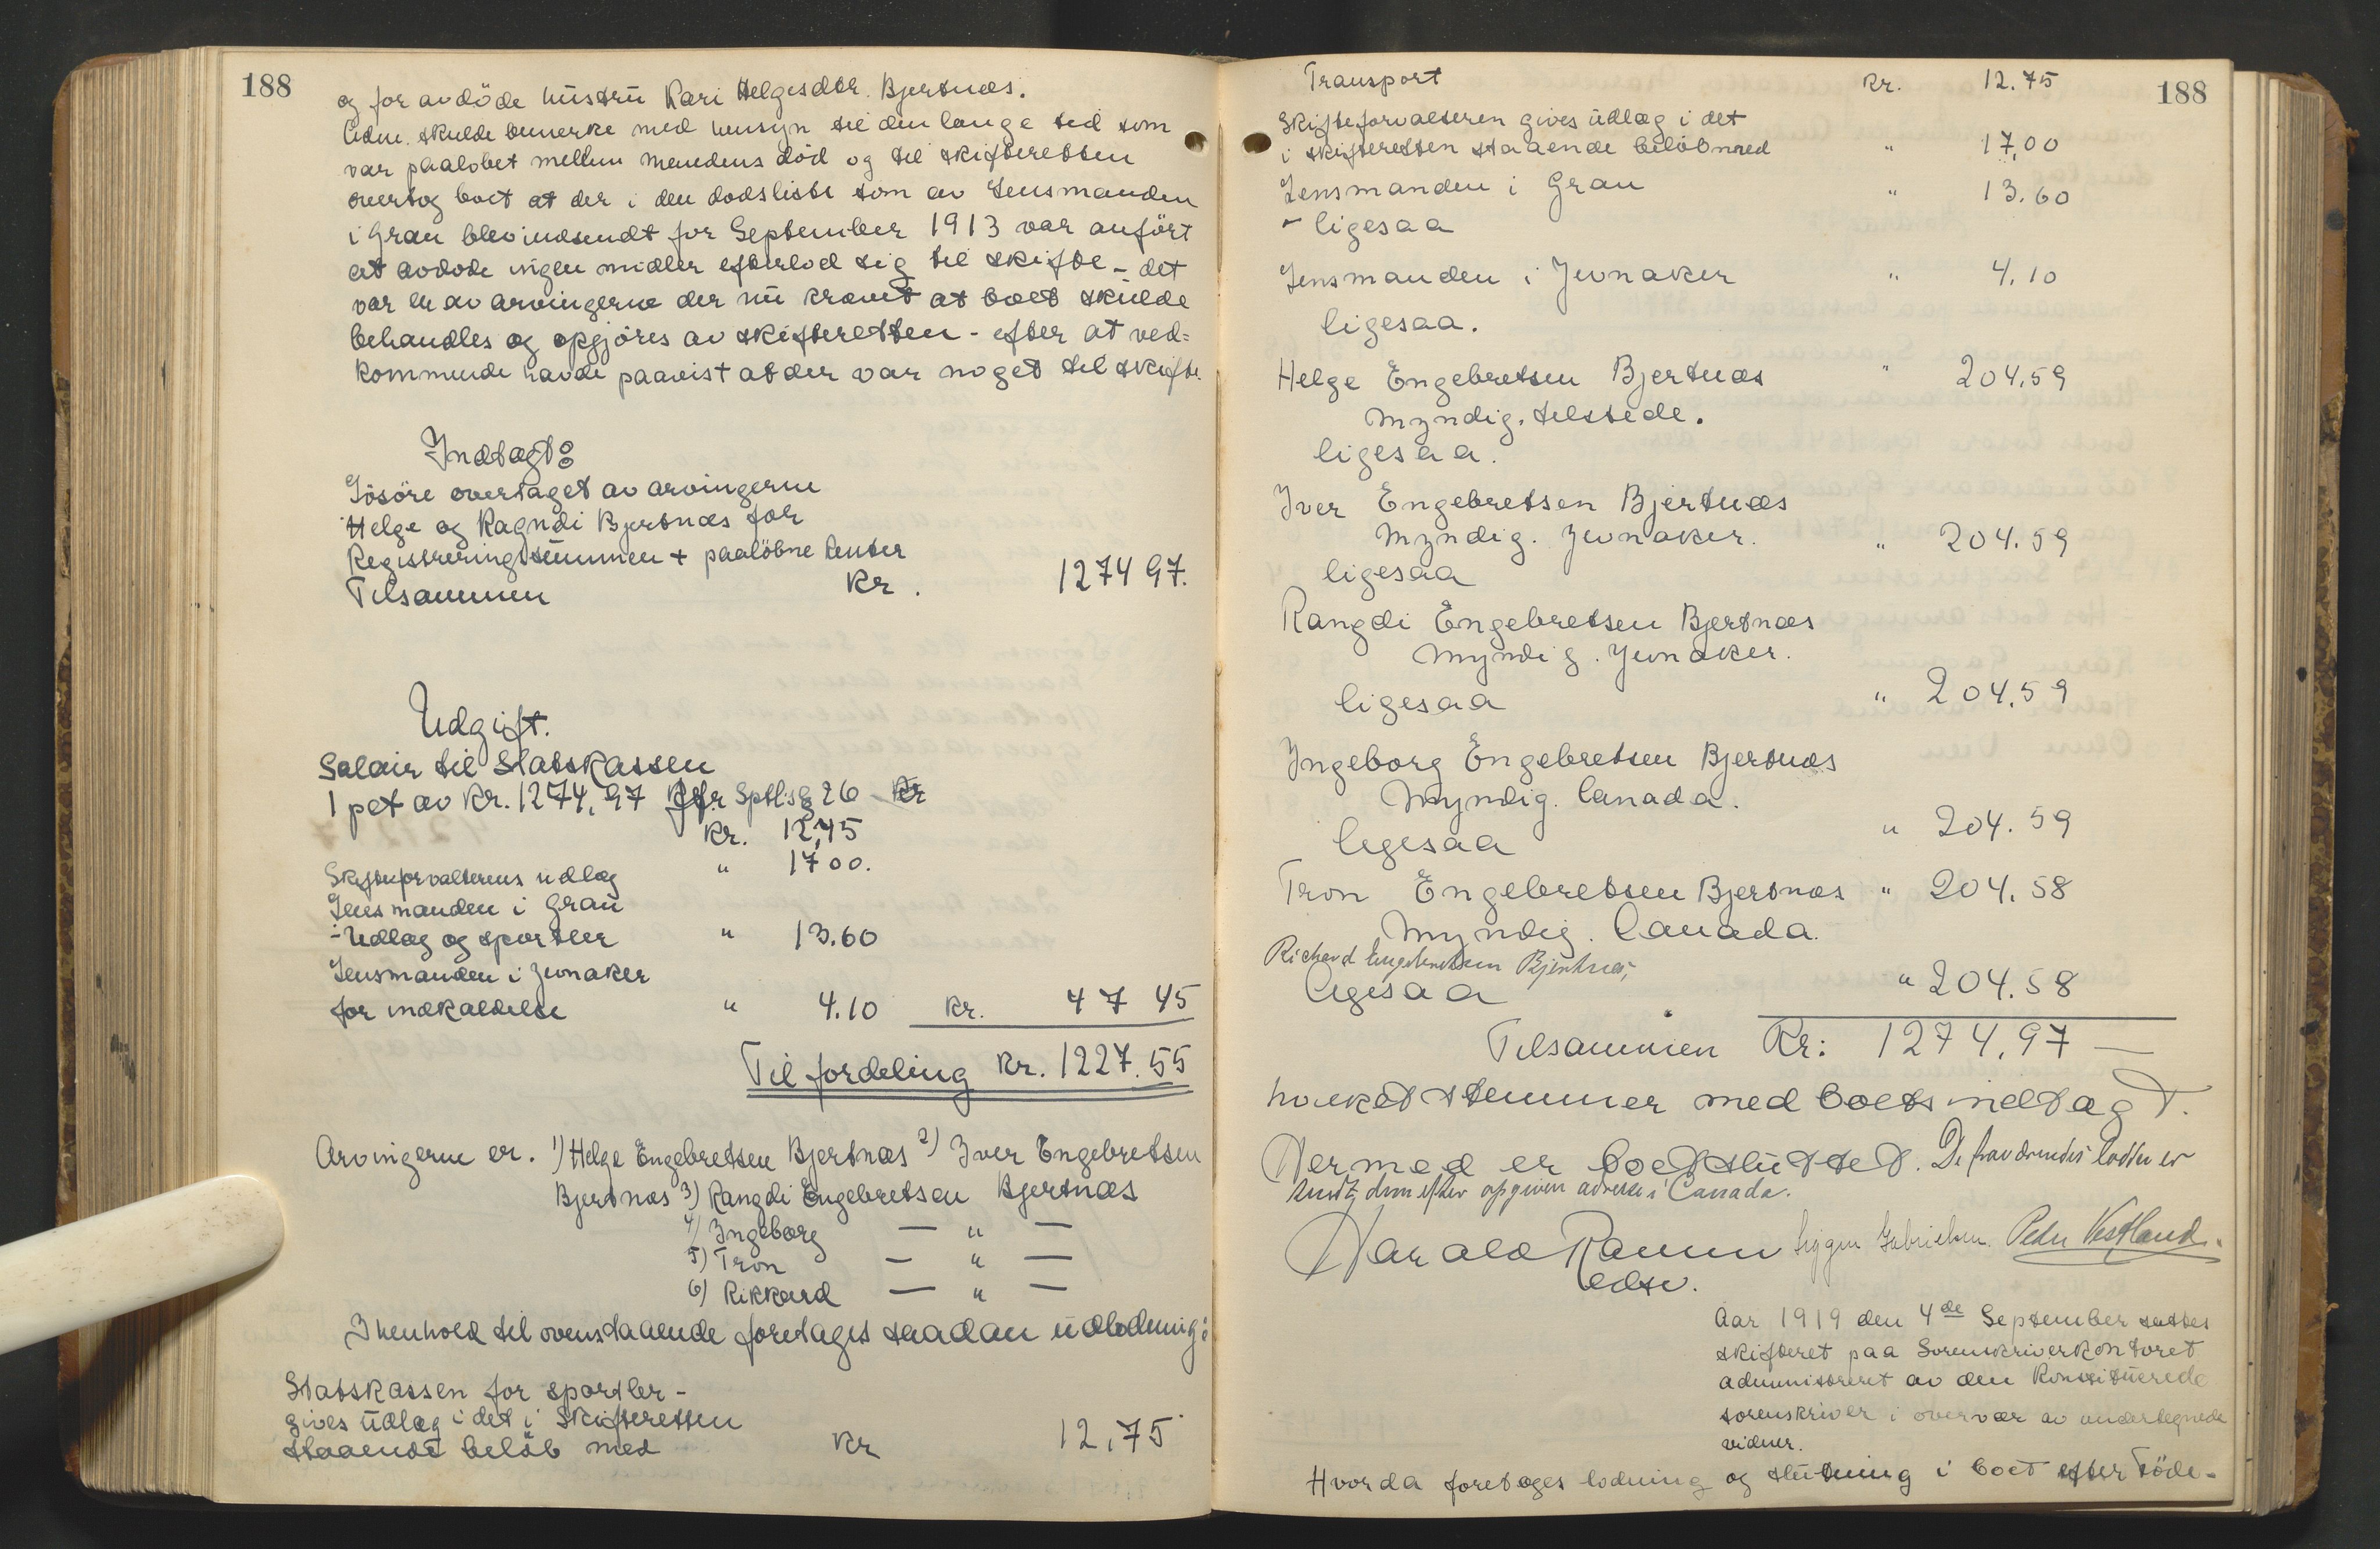 188
og for avdöde hustru Kari Helgesdtr. Bjertnæs.
Adm. skulde bemerke med hensyn til den lange tid som
var paalöbet mellem mandens död og til skifteretten
overtog boet at der i den dodsliste som av Lensmanden
i Gran blev indsendt for September 1913 var anfört
at avdode ingen midler efterlod sig til skifte - det
var en av arvingerne der nu krævet at boet skulde
behandles og opgjöres av skifteretten - efter at ved=
kommende havde paavist at der var noget til skifte.
Indtægt:
Lösöre overtaget av arvingerne
Helge og Ragndi Bjertnæs for
Registreringssummen + paalöbne renter
Tilsammen kr. 1274 97.
Udgift.
Salair til Statskassen
1 pct av kr. 1274,97 Jfr Sptlsg 26 kr
kr. 12,75
Skifteforvalterens udlæg " 17 00.
Lensmanden i Gran
- Udlæg og sportler " 13.60
Lensmanden i Jevnaker
for indkaldelse " 4.10 kr. 47 45
Til fordeling kr. 1227.55
Arvingerne er. 1) Helge Engebretsen Bjertnæs 2) Iver Engebretsen
Bjertnæs 3) Rangdi Engebretsen Bjertnæs
4) Ingeborg — " —
5) Tron — " —
6) Rikkard — " —
I henhold til ovenstaaende foretages saadan udlodning:
Statskassen for sportler -
gives udlæg i det i Skifteretten
staaende belöb med kr 12,75
188
Transport kr. 12.75
Skifteforvalteren gives udlæg i det
i skifteretten staaende belöb med " 17,00
Lensmanden i Gran " 13.60
- ligesaa
Lensmanden i Jevnaker " 4.10
ligesaa.
Helge Engebretsen Bjertnæs " 204.59
Myndig, tilstede.
ligesaa.
Iver Engebretsen Bjertnæs
Myndig. Jevnaker. " 204.59
ligesaa
Rangdi Engebretsen Bjertnæs
Myndig. Jevnaker.
ligesaa " 204.59
Ingeborg Engebretsen Bjertnæs
Myndig. Canada.
ligesaa " 204.59
Tron Engebretsen Bjertnæs " 204.58
Myndig. Canada.
Richard Engebretsen Bjertnæs,
ligesaa " 204.58
Tilsammen Kr: 1274,97 —
hvilket stemmer med boets indtægt.
Dermed er boet sluttet. De fraværendes lodder er
sendt dem efter opgiven adresse i Canada.
Harald Ramm Siggen Gabrielsen. Peder Vestland.
edsv.
Aar 1919 den 4de September sattes
skifteret paa Sorenskriverkontoret
administreret av den Konstituerede
sorenskriver i overvær av undertegnede
vidner.
Hvorda foretages lodning og slutning i boet efter Föde-